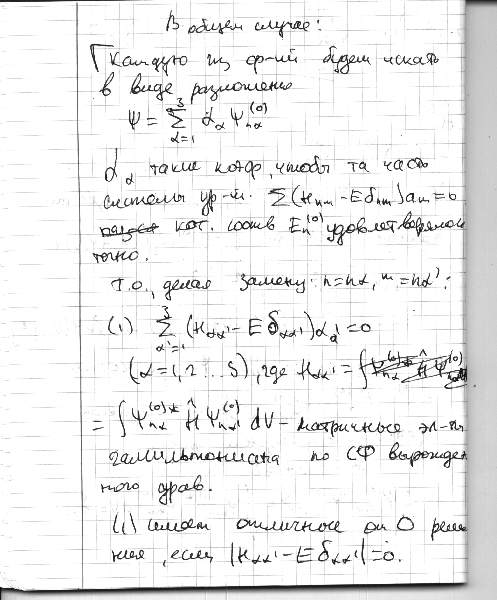 В общем случае:
Каждую из ф-ий будем искать
в виде разложения
Ψ = Σ_{α=1}^{3} α_α Ψ_{nα}^{(0)}
α_α такие коэф, чтобы та часть
системы ур-й. Σ(H_{nm} - Eδ_{nm})a_m = 0
кот. соотв E_n^{(0)} удовлетворялась
точно.
Т.о., делая замену: n=nα, m=nα':
(1) Σ_{α'=1}^{3} (H_{αα'} - Eδ_{αα'})α_{α'} = 0
(α=1,2...S), где H_{αα'} = ∫
= ∫Ψ_{nα}^{(0)*} Ĥ Ψ_{nα'}^{(0)} dV - матричные эл-ты
гамильтониана по СФ вырожден
ного урав.
(1) имеет отличное от 0 реше
ние, если |H_{αα'} - Eδ_{αα'}| = 0.